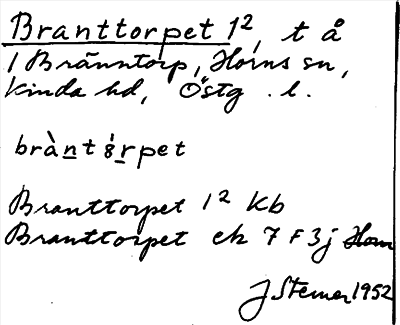 Branttorpet 1², t å
/ Bränntorp, Horns sn,
Kinda hd, Östg. l.
bràntȣ́rpet
Branttorpet 1² Kb
Branttorpet ek 7 F 3j Horn
J Sterner 1952